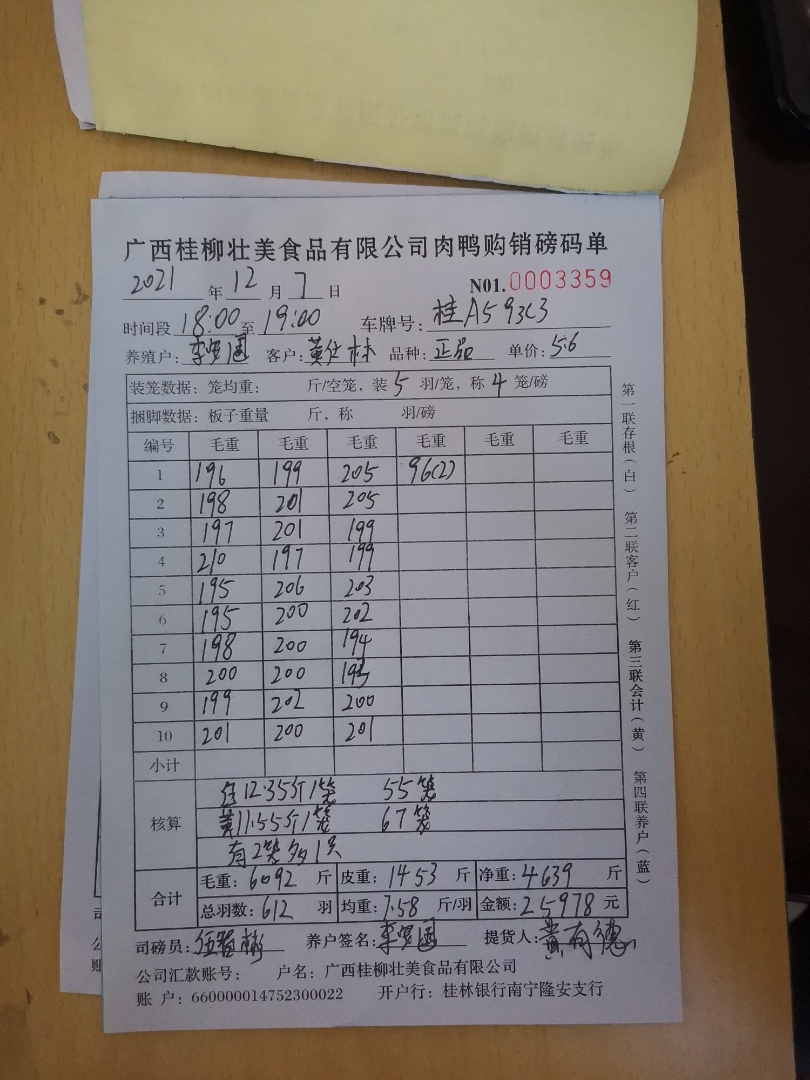 广西桂柳壮美食品有限公司肉鸭购销磅码单
2021 年 12 月 7 日 N01.0003359
时间段 18:00 至 19:00 车牌号: 桂A593C3
养殖户: 李罗国 客户: 黄仕林 品种: 正品 单价: 5.6
装笼数据: 笼均重: 斤/空笼, 装 5 羽/笼, 称 4 笼/磅
捆脚数据: 板子重量 斤, 称 羽/磅
编号 毛重 毛重 毛重 毛重 毛重 毛重
1 196 199 205 96(2)
2 198 201 205
3 197 201 199
4 210 197 199
5 195 206 203
6 195 200 202
7 198 200 194
8 200 200 193
9 199 202 200
10 201 200 201
小计
核算
12.35斤/笼 55笼
黄11.55斤/笼 67笼
有2笼多1只
合计
毛重: 6092 斤 皮重: 1453 斤 净重: 4639 斤
总羽数: 612 羽 均重: 7.58 斤/羽 金额: 25978 元
司磅员: 养户签名: 李罗国 提货人: 黄有德
公司汇款账号: 户名: 广西桂柳壮美食品有限公司
账 户: 660000014752300022 开户行: 桂林银行南宁隆安支行
第一联存根(白) 第二联客户(红) 第三联会计(黄) 第四联养户(蓝)
司
公
账